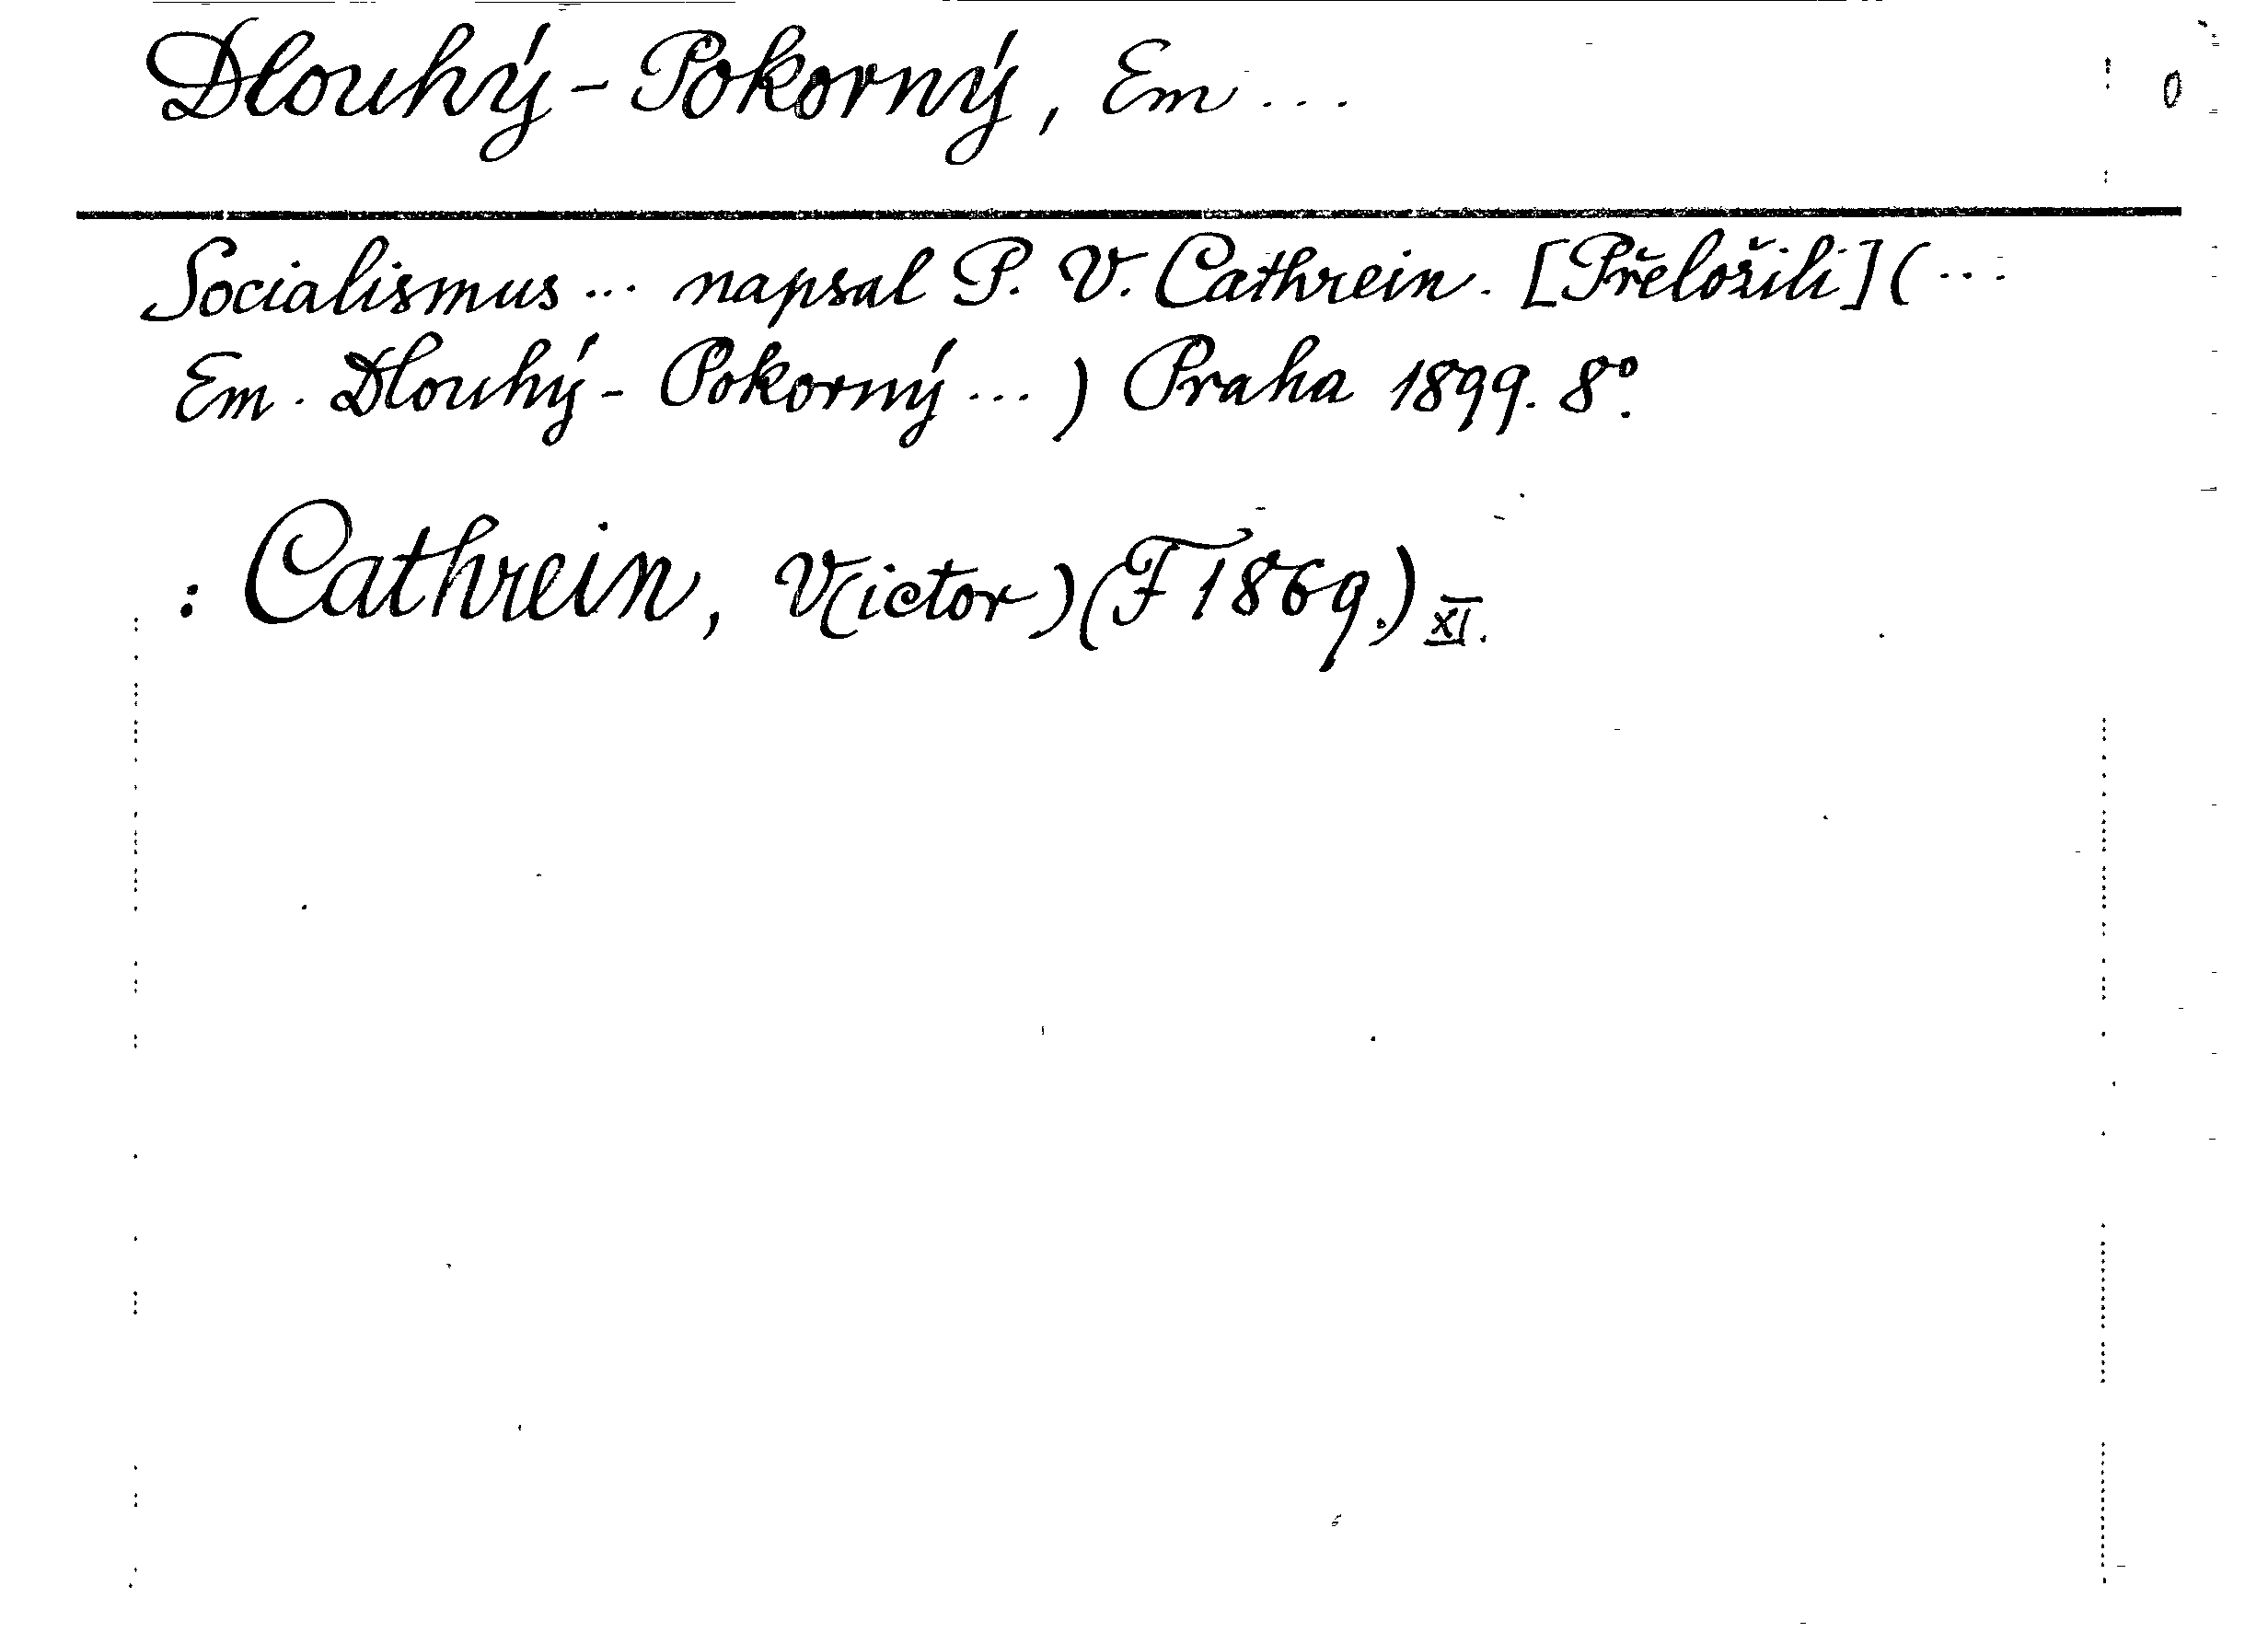 Dlouhý - Pokorný, Em ...
0
Socialismus ... napsal P. V. Cathrein. [Přeložili] (...
Em. Dlouhý - Pokorný ... ) Praha 1899. 8°.
: Cathrein, V(ictor) (F 1869.) XI.